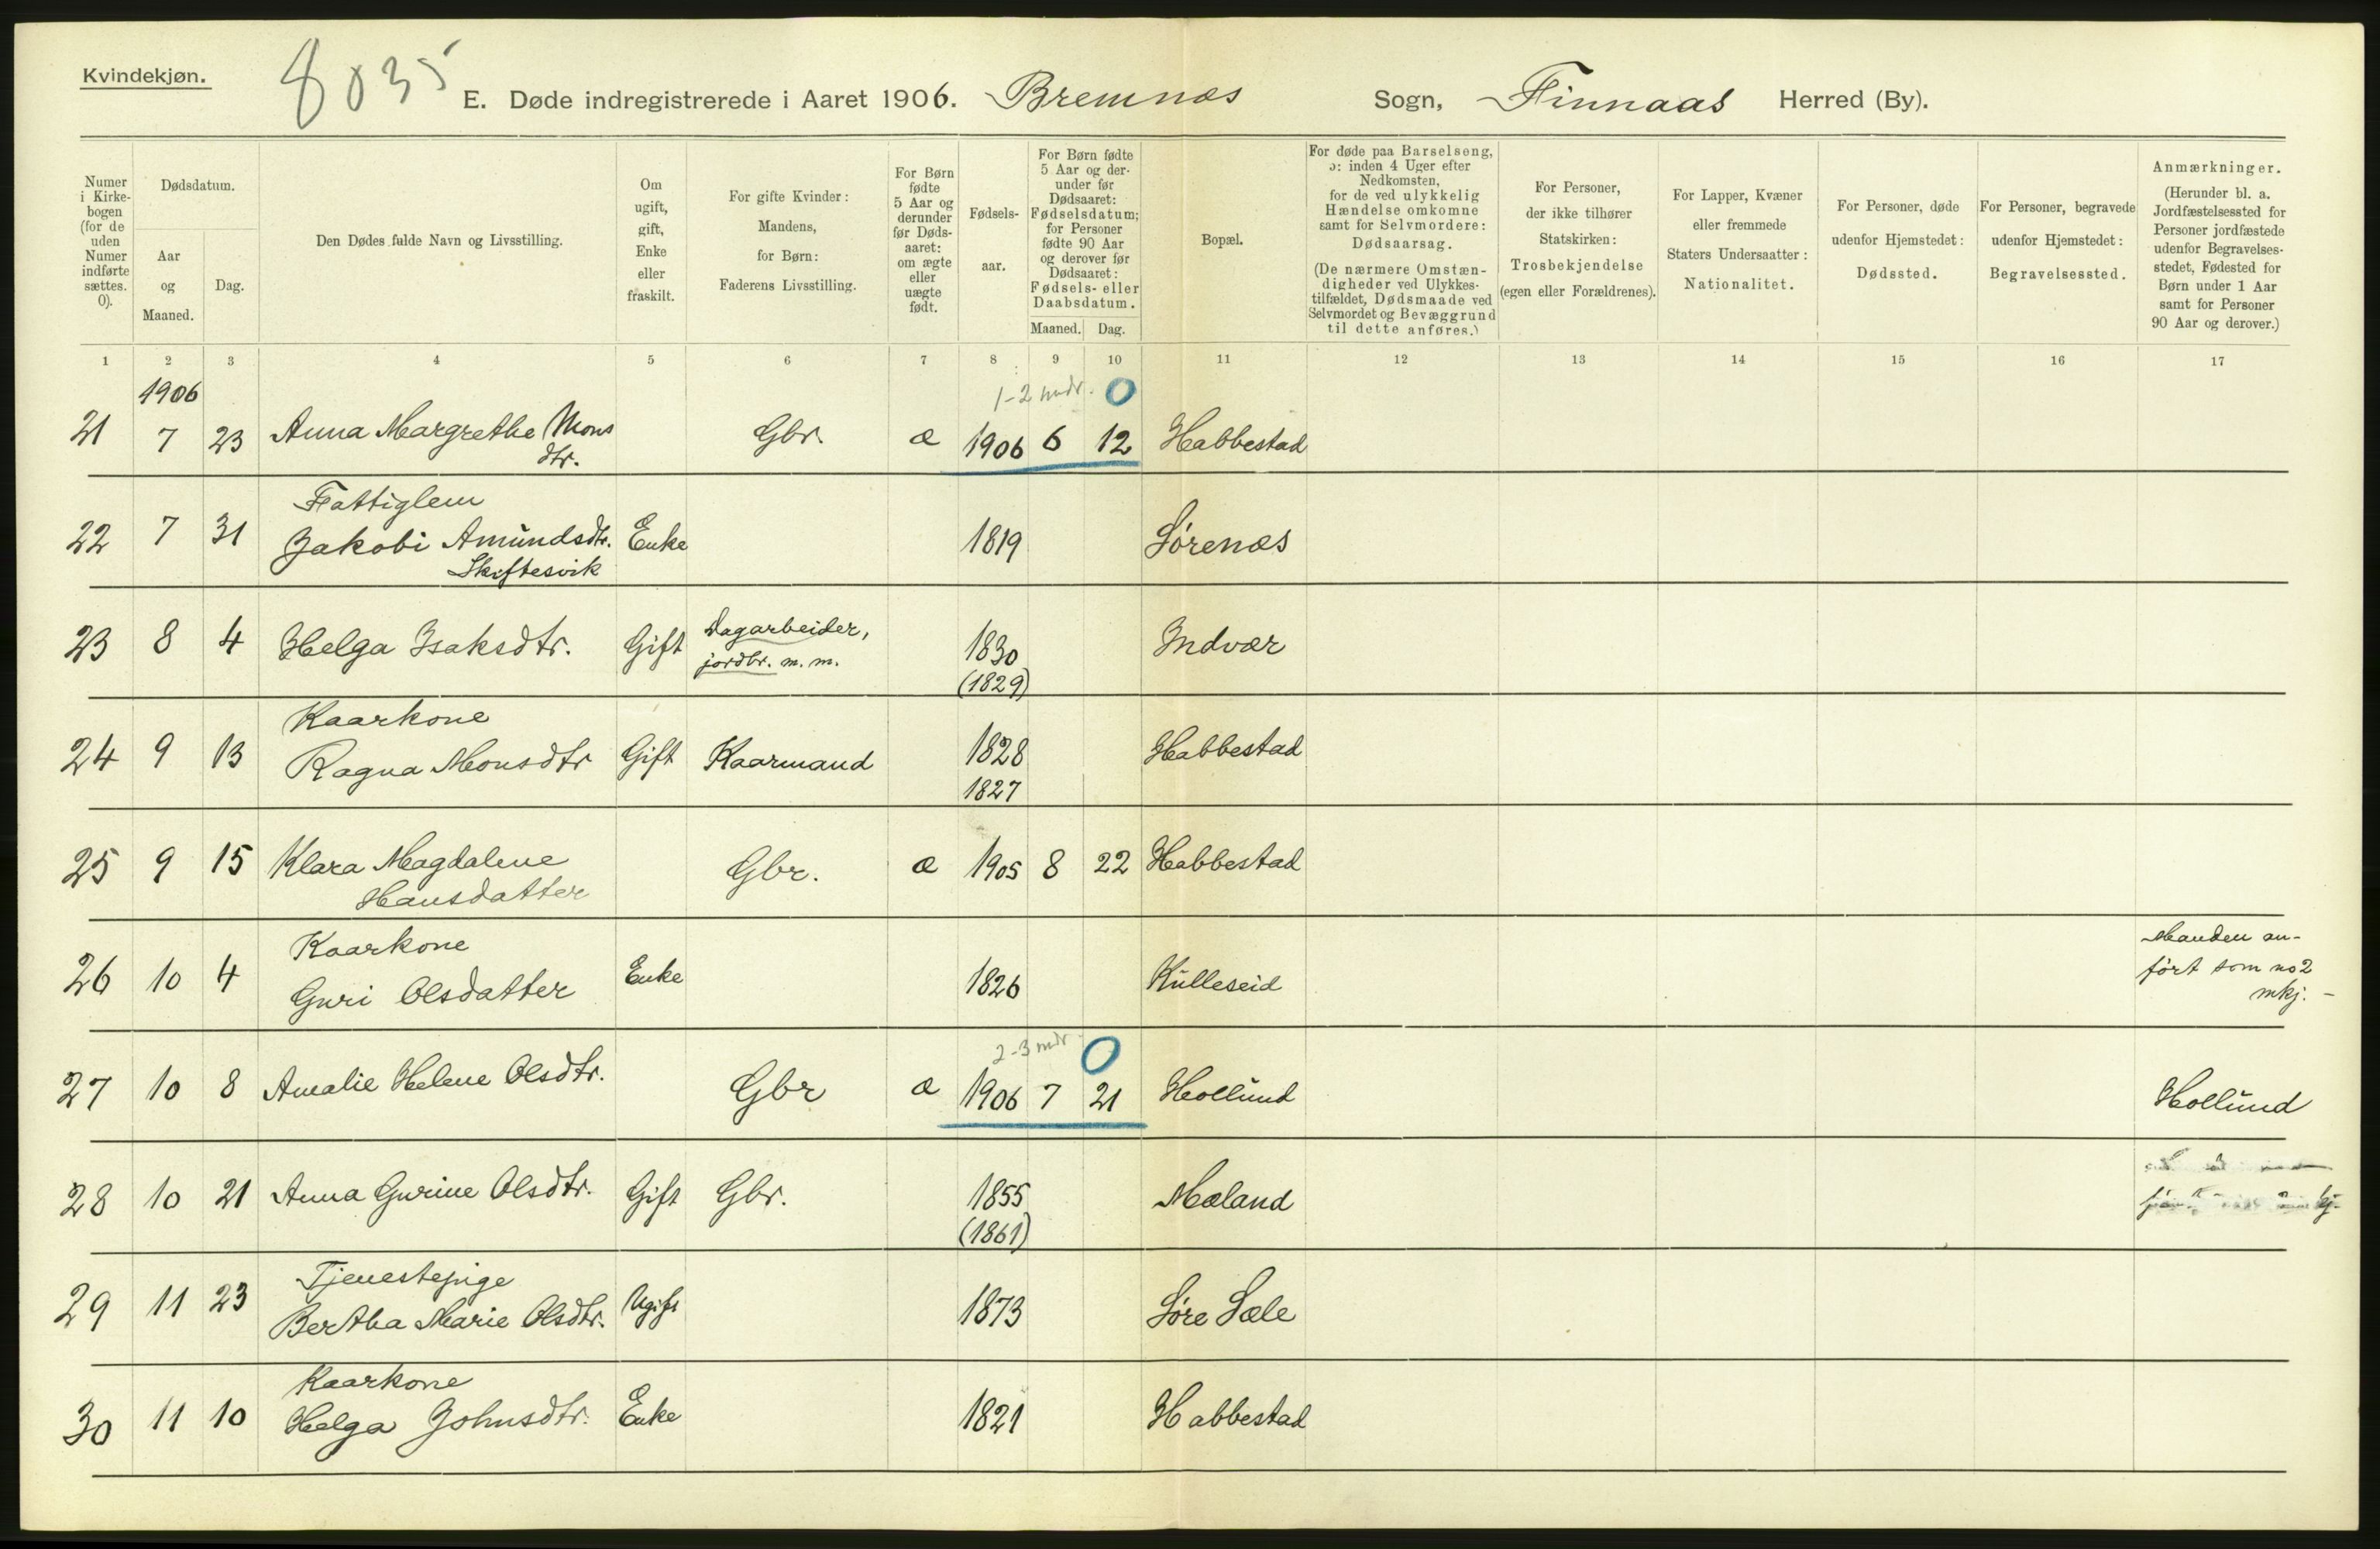 Kvindekjøn.
8035
E. Døde indregistrerede i Aaret 1906. Bremnæs Sogn, Finnaas Herred (By).
Numer i Kirkebogen (for de uden Numer indførte sættes. 0).
Dødsdatum.
Aar og Maaned.
Dag.
Den Dødes fulde Navn og Livsstilling.
Om ugift, gift, Enke eller fraskilt.
For gifte Kvinder: Mandens, for Børn: Faderens Livsstilling.
For Børn fødte 5 Aar og derunder før Dødsaaret: om ægte eller uægte født.
Fødselsaar.
For Børn fødte 5 Aar og derunder før Dødsaaret: Fødselsdatum; for Personer fødte 90 Aar og derover før Dødsaaret: Fødsels- eller Daabsdatum.
Maaned. Dag.
Bopæl.
For døde paa Barselseng, ɔ: inden 4 Uger efter Nedkomsten, for de ved ulykkelig Hændelse omkomne samt for Selvmordere: Dødsaarsag.
(De nærmere Omstændigheder ved Ulykkestilfældet, Dødsmaade ved Selvmordet og Bevæggrund til dette anføres.)
For Personer, der ikke tilhører Statskirken: Trosbekjendelse (egen eller Forældrenes).
For Lapper, Kvæner eller fremmede Staters Undersaatter: Nationalitet.
For Personer, døde udenfor Hjemstedet: Dødssted.
For Personer, begravede udenfor Hjemstedet: Begravelsessted.
Anmærkninger.
(Herunder bl. a. Jordfæstelsessted for Personer jordfæstede udenfor Begravelsesstedet, Fødested for Børn under 1 Aar samt for Personer 90 Aar og derover.)
1 2 3 4 5 6 7 8 9 10 11 12 13 14 15 16 17
1906
1-2 mdr. 0
21 7 23 Anna Margrethe Mons Gbr. æ 1906 6 12 Habbestad
dtr.
Fattiglem
22 7 31 Jakobi Amundsdtr. Enke 1819 Sørenæs
Skiftesvik
23 8 4 Helga Isaksdtr. Gift Dagarbeider, 1830 Indvær
jordbr. m. m.
(1829)
Kaarkone
24 9 13 Ragna Monsdtr Gift Kaarmand 1828 Habbestad
1827
25 9 15 Klara Magdalene Gbr. æ 1905 8 22 Habbestad
Hansdatter
Kaarkone
26 10 4 Guri Olsdatter Enke 1826 Kulleseid
Manden an-
ført som no 2
mkj. -
2-3 mdr. 0
27 10 8 Amalie Helene Olsdtr. Gbr æ 1906 7 21 Hollund Hollund
28 10 21 Anna Gurine Olsdtr. Gift Gbr. 1855 Mæland
(1861)
Tjenestepige
29 11 23 Bertha Marie Olsdtr. Ugift 1873 Søre Sæle
Kaarkone
30 11 10 Helga Johnsdtr. Enke 1821 Habbestad